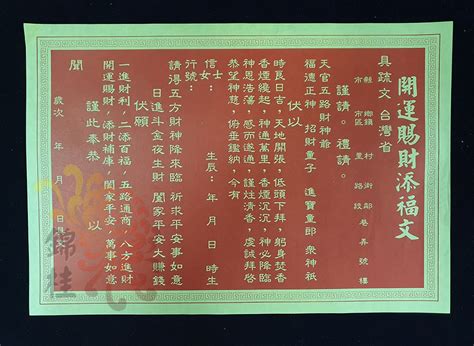 開運賜財添福文
具疏文 台灣省 縣市 鄉鎮市區 村里 街路 鄰段 巷 弄 號 樓
謹請。禮請。
天官五路財神爺
福德正神 招財童子 進寶童郎 眾神祇
伏以
時良日吉,天地開張,低頭下拜,躬身焚香
香煙繞起,神通萬里,香煙沉沉,神必降臨
神恩浩蕩,感而遂通,謹炷清香,虔誠拜啟
恭望神慈,俯垂鑑納,今有
信士女: 生辰: 年 月 日 時生
行號:
請得五方財神降來臨 祈求平安事如意
日進斗金夜生財 闔家平安大賺錢
伏願
一進財利,二添百福,五路通商,八方進財
開運賜財,添財補庫,闔家平安,萬事如意
謹此奉恭 以
聞
歲次 年 月 日
錦桂